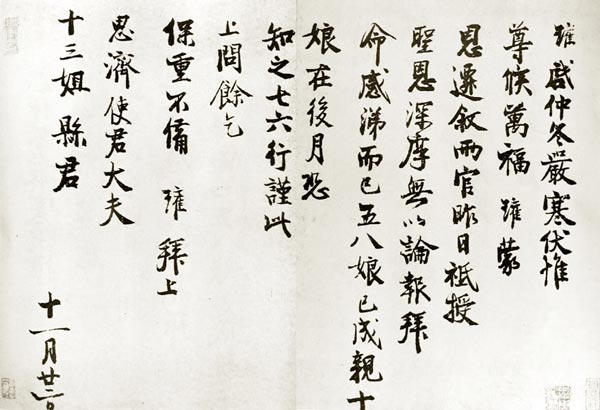 雍啓仲冬嚴寒伏惟
尊候萬福雍蒙
恩遷敘兩官昨日祗授
聖恩深厚無以論報拜
命感涕而已五八娘已成親十
娘在後月恐
知之七六行謹此
上問餘乞
保重不備 雍 拜上
思濟使君大夫
十三姐縣君
十一月廿二日